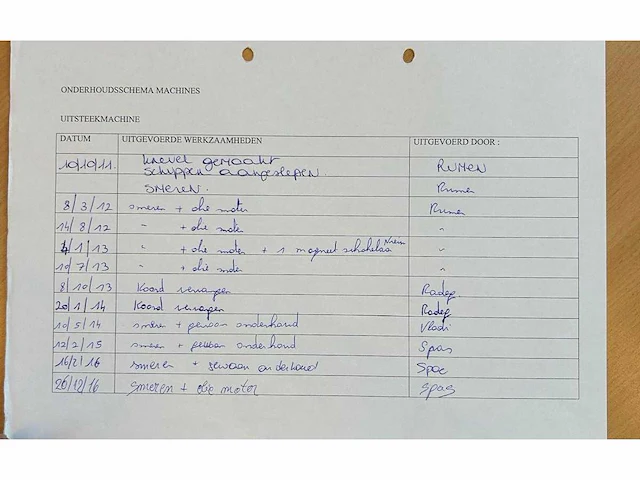 ONDERHOUDSSCHEMA MACHINES
UITSTEEKMACHINE
DATUM UITGEVOERDE WERKZAAMHEDEN UITGEVOERD DOOR :
10/10/11. knevel gemaakt
schuppen aangeslepen. RUMEN
SMEREN. Rumen
8/3/12 smeren + olie motor Rumen
14/8/12 " + olie motor "
4/1/13 " + olie motor + 1 magneet schakelaar "
10/7/13 " + olie motor "
8/10/13 Koord vervangen Radep
20/1/14 Koord vervangen Radep
10/5/14 smeren + gewoon onderhoud Vladi
12/2/15 smeren + gewoon onderhoud Spas
16/2/16 smeren + gewoon onderhoud Spas
26/12/16 smeren + olie motor Spas